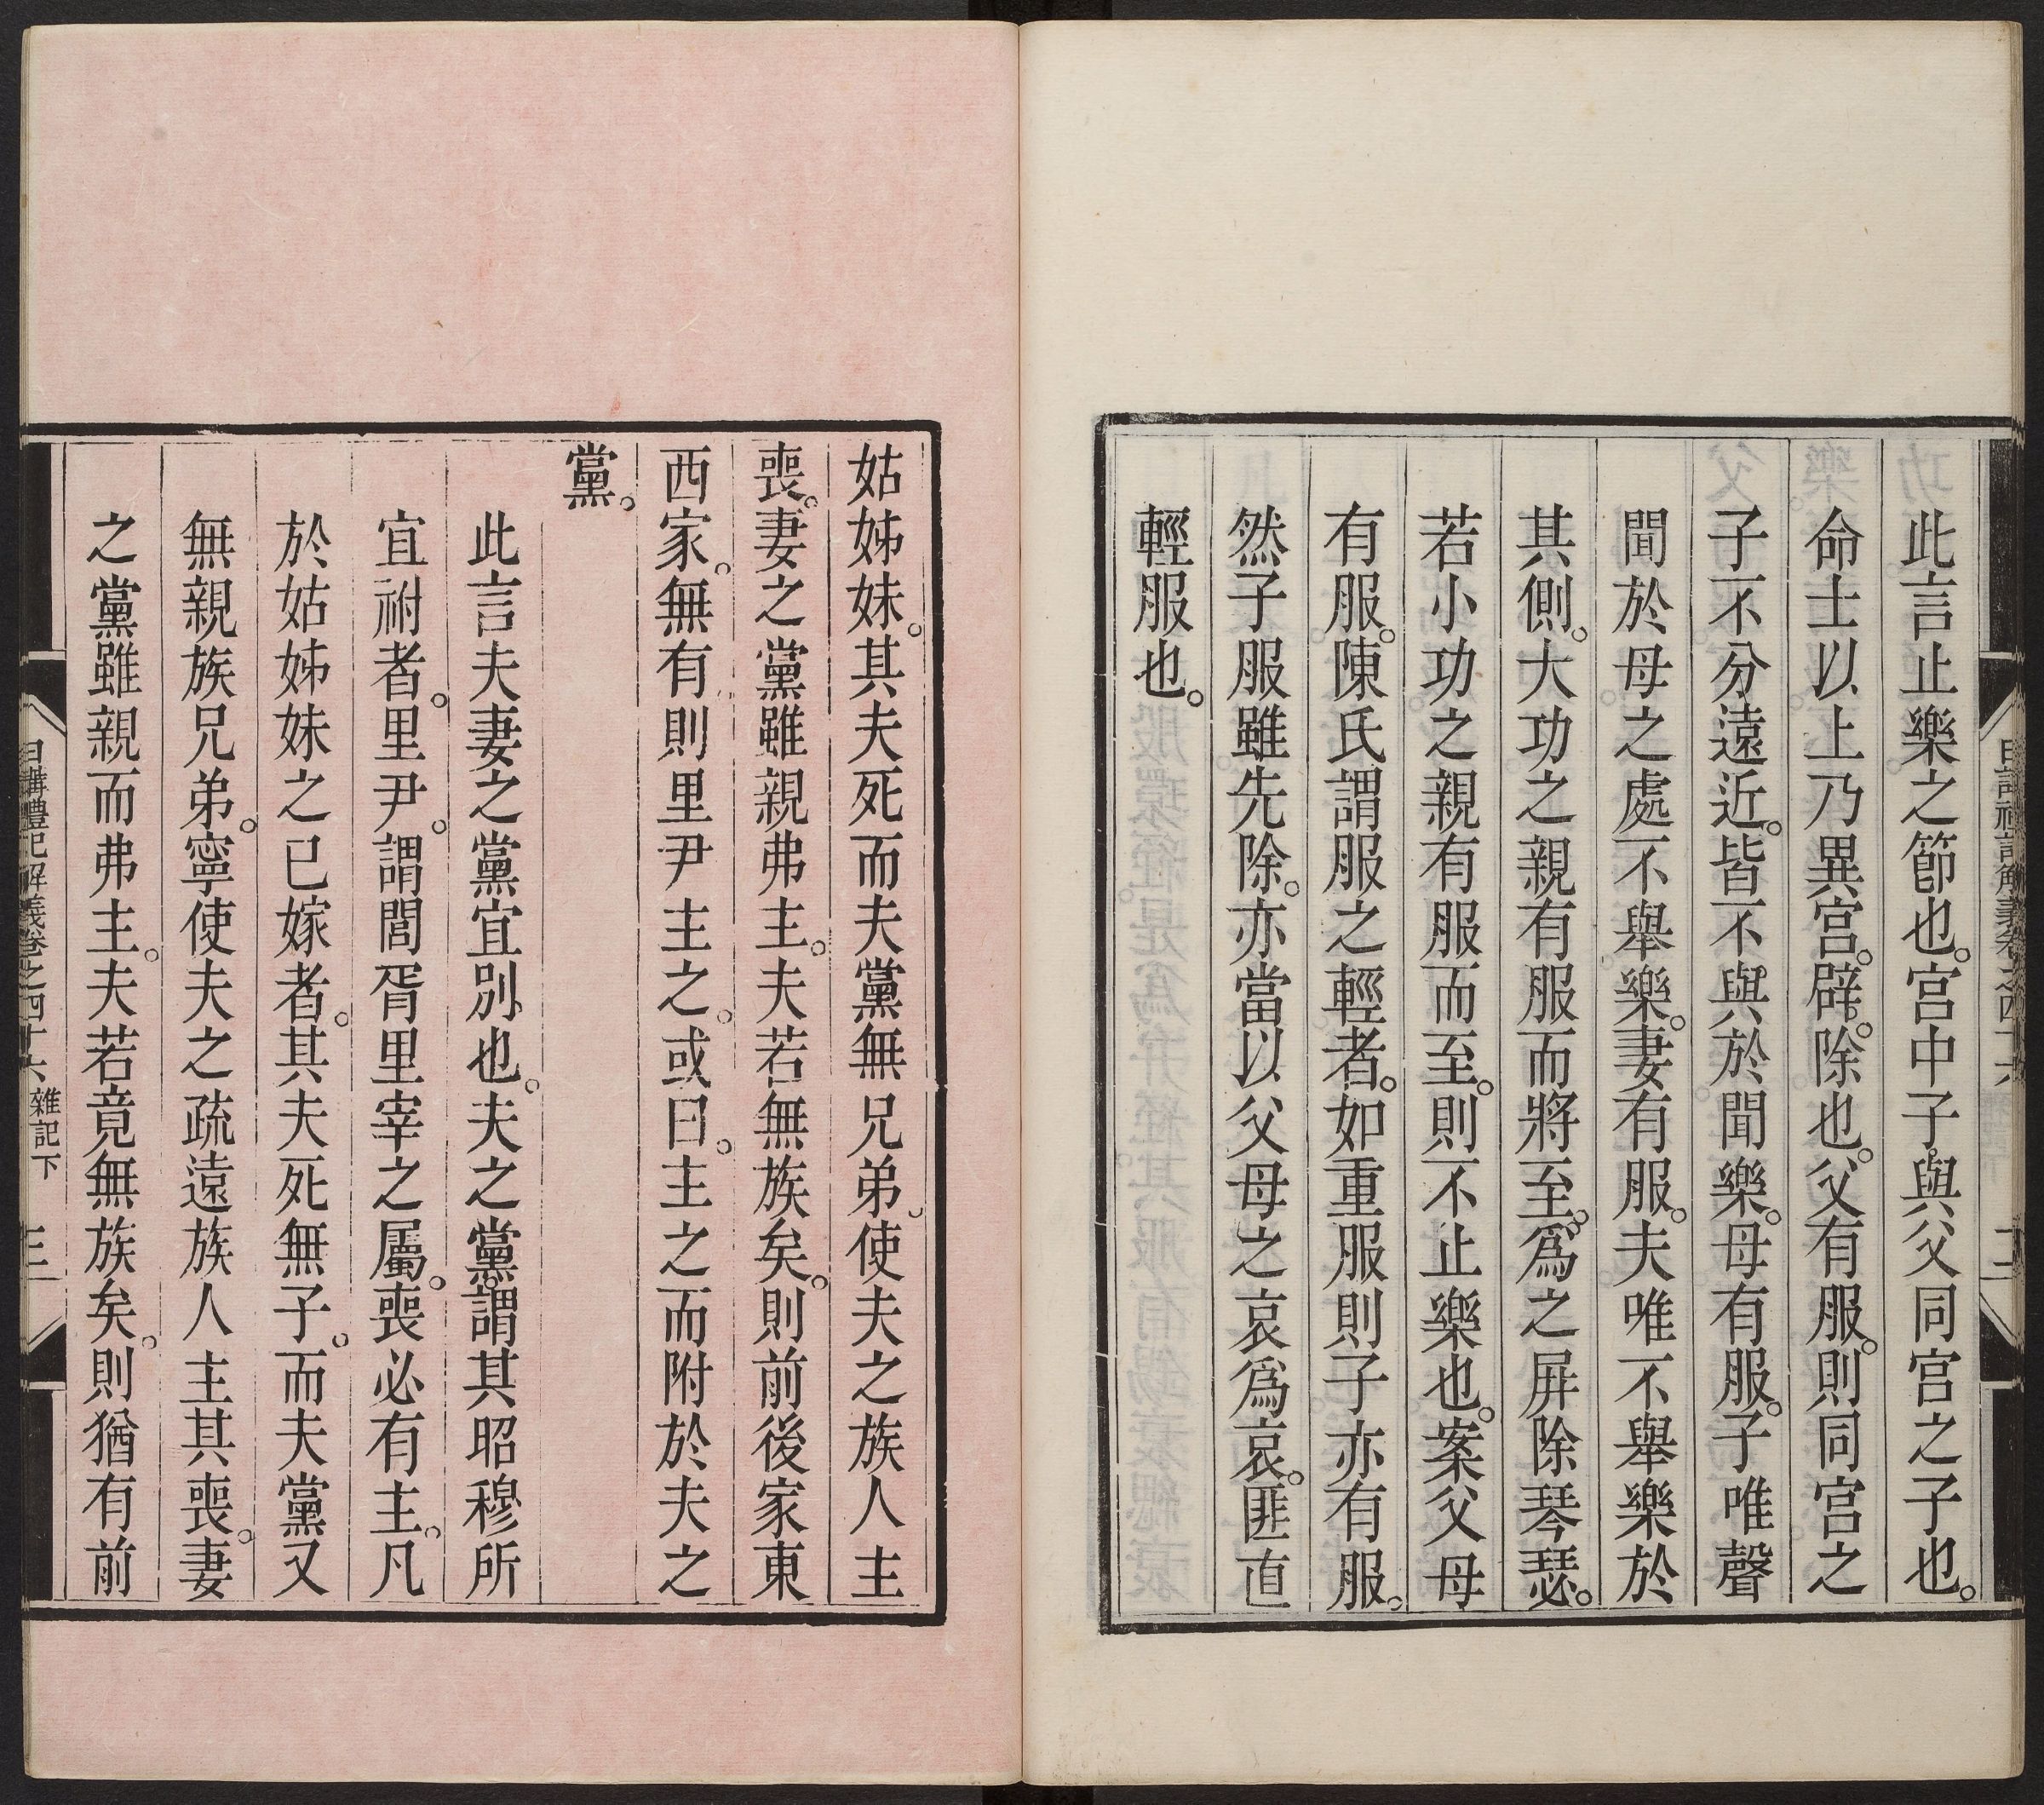 此言止樂之節也。宫中子與父同宫之子也。
命士以上乃異宫。辟。除也。父有服。則同宫之
子不分遠近。皆不與於聞樂。母有服。子唯聲
聞於母之處不舉樂。妻有服。夫唯不舉樂於
其側。大功之親有服而將至。爲之屏除琴瑟。
若小功之親有服而至。則不止樂也。案父母
有服。陳氏謂服之輕者。如重服則子亦有服。
然子服雖先除。亦當以父母之哀爲哀。匪直
輕服也。
姑姊妹。其夫死而夫黨無兄弟。使夫之族人主
喪。妻之黨雖親弗主。夫若無族矣。則前後家東
西家。無有則里尹主之。或曰。主之而附於夫之
黨。
此言夫妻之黨宜別也。夫之黨。謂其昭穆所
宜祔者。里尹。謂閭胥里宰之屬。喪必有主。凡
於姑姊妹之已嫁者。其夫死無子。而夫黨又
無親族兄弟。寧使夫之疏遠族人主其喪。妻
之黨雖親而弗主。夫若竟無族矣。則猶有前
日講禮記解義卷之四十六 雜記下 三